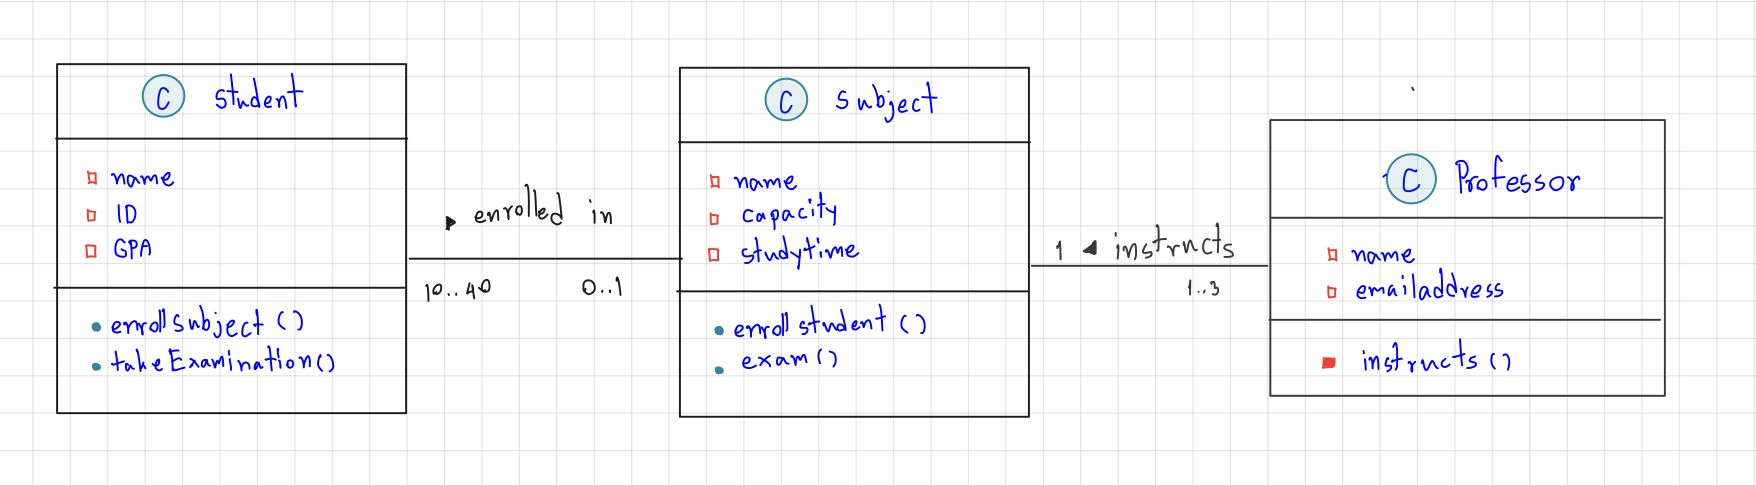 C student
name
ID
GPA
enrollsubject ()
takeExamination()
▶ enrolled in
10..40 0..1
C subject
name
capacity
studytime
enrollstudent ()
exam()
1 ◀ instructs
1..3
C Professor
name
emailaddress
instructs ()